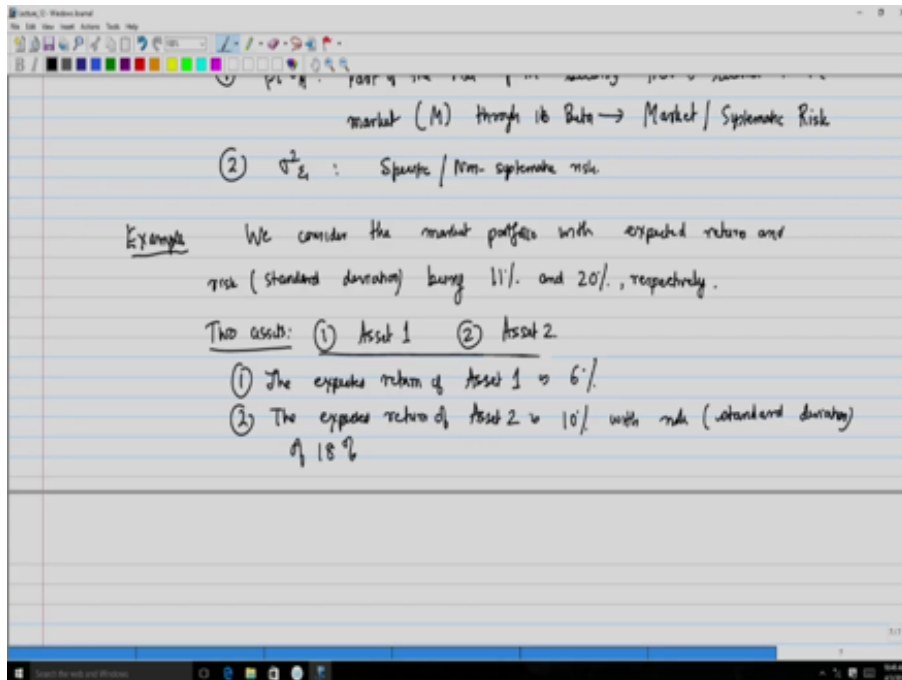 market (M) through its Beta → Market / Systematic Risk
② σ²ε₁ : Specific / Non-systematic risk
Example We consider the market portfolio with expected return and
risk (standard deviation) being 11% and 20%, respectively.
Two assets: ① Asset 1 ② Asset 2
① The expected return of Asset 1 is 6%
② The expected return of Asset 2 is 10% with risk (standard deviation)
of 18%
Search the web and Windows